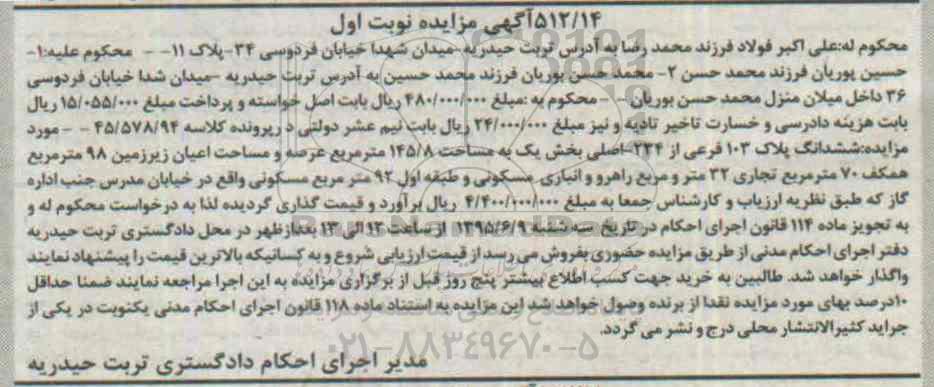 ۵۱۲/۱۴آگهی مزایده نوبت اول
محکوم له:علی اکبر فولاد فرزند محمد رضا به آدرس تربت حیدریه-میدان شهدا خیابان فردوسی ۳۴-پلاک ۱۱- - محکوم علیه:۱-
حسین پوریان فرزند محمد حسن ۲- محمد حسن بوریان فرزند محمد حسین به آدرس تربت حیدریه -میدان شدا خیابان فردوسی
۳۶ داخل میلان منزل محمد حسن بوریان - -محکوم به :مبلغ ۴۸۰/۰۰۰/۰۰۰ ریال بابت اصل خواسته و پرداخت مبلغ ۱۵/۰۵۵/۰۰۰ ریال
بابت هزینه دادرسی و خسارت تاخیر تادیه و نیز مبلغ ۲۴/۰۰۰/۰۰۰ ریال بابت نیم عشر دولتی درپرونده کلاسه ۴۵/۵۷۸/۹۴ - -مورد
مزایده:ششدانگ پلاک ۱۰۳ فرعی از ۲۳۴-اصلی بخش یک به مساحت ۱۴۵/۸ مترمربع عرصه و مساحت اعیان زیرزمین ۹۸ مترمربع
همکف ۷۰ مترمربع تجاری ۳۲ متر و مربع راهرو و انباری مسکونی و طبقه اول ۹۲ متر مربع مسکونی واقع در خیابان مدرس جنب اداره
گاز که طبق نظریه ارزیاب و کارشناس جمعا به مبلغ ۴/۴۰۰/۰۰۰/۰۰۰ ریال برآورد و قیمت گذاری گردیده لذا به درخواست محکوم له و
به تجویز ماده ۱۱۴ قانون اجرای احکام در تاریخ سه شنبه ۱۳۹۵/۶/۹ از ساعت ۱۲ الی ۱۳ بعدازظهر در محل دادگستری تربت حیدریه
دفتر اجرای احکام مدنی از طریق مزایده حضوری بفروش می رسد از قیمت ارزیابی شروع و به کسانیکه بالاترین قیمت را پیشنهاد نمایند
واگذار خواهد شد. طالبین به خرید جهت کسب اطلاع بیشتر پنج روز قبل از برگزاری مزایده به این اجرا مراجعه نمایند ضمنا حداقل
۱۰درصد بهای مورد مزایده نقدا از برنده وصول خواهد شد این مزایده به استناد ماده ۱۱۸ قانون اجرای احکام مدنی یکنوبت در یکی از
جراید کثیرالانتشار محلی درج و نشر می گردد.
۰۲۱-۸۸۳۴۹۶۷۰-۵
مدیر اجرای احکام دادگستری تربت حیدریه